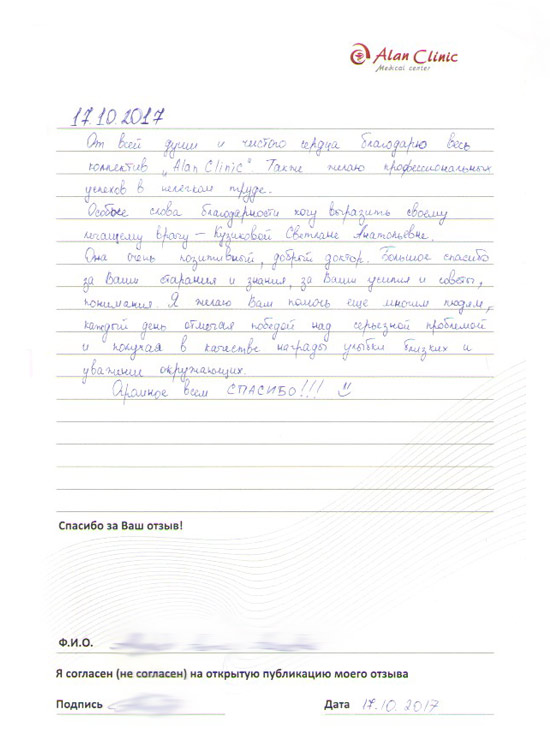 Alan Clinic
Medical center
17.10.2017
От всей души и чистого сердца благодарю весь
коллектив „Alan Clinic" Также желаю профессиональных
успехов в нелегком труде.
Особые слова благодарности хочу выразить своему
лечащему врачу – Кузиковой Светлане Анатольевне.
Она очень позитивный, добрый доктор. Большое спасибо
за Ваши старания и знания, за Ваши усилия и советы,
понимания. Я желаю Вам помочь еще многим людям,
каждый день отмечая победой над серьезной проблемой
и получая в качестве награды улыбки близких и
уважение окружающих.
Огромное всем СПАСИБО!!!
Спасибо за Ваш отзыв!
Ф.И.О.
Я согласен (не согласен) на открытую публикацию моего отзыва
Подпись Дата 17.10.2017